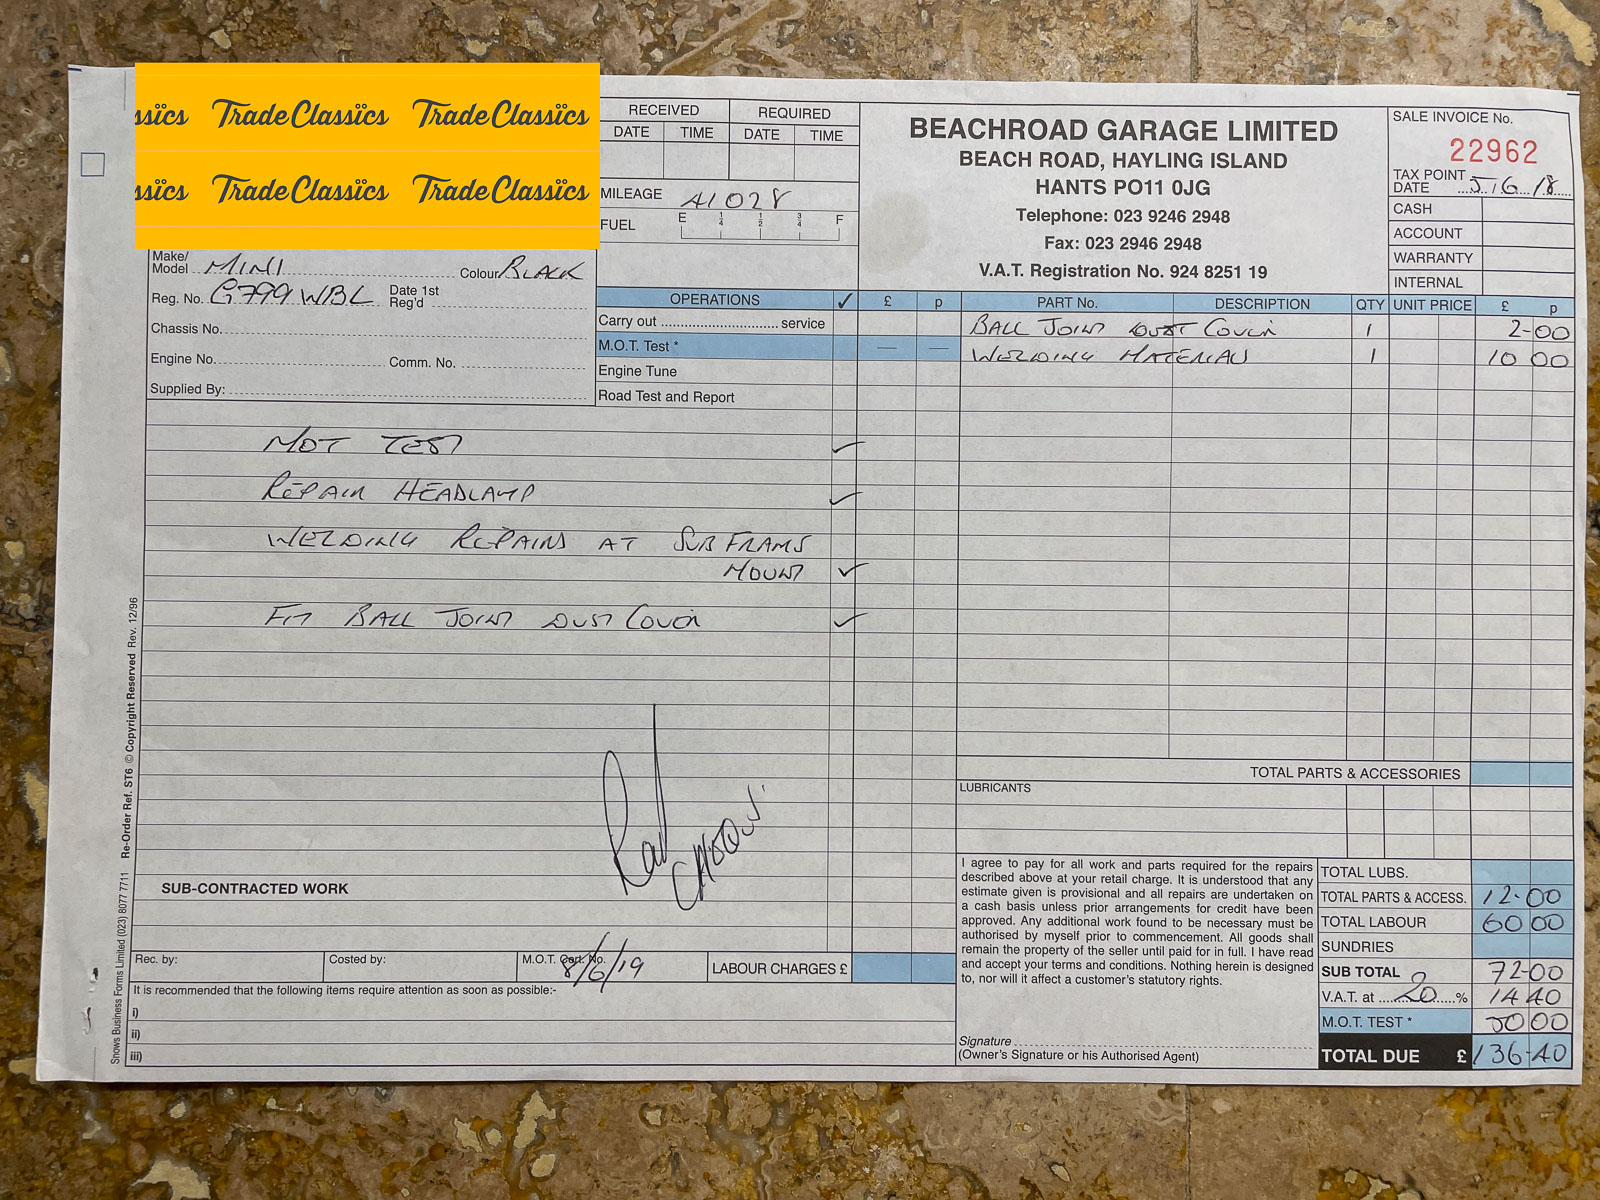 ssïcs TradeClassïcs TradeClassïcs
ssïcs TradeClassïcs TradeClassïcs
RECEIVED REQUIRED
DATE TIME DATE TIME
MILEAGE 41028
FUEL E 1/4 1/2 3/4 F
BEACHROAD GARAGE LIMITED
BEACH ROAD, HAYLING ISLAND
HANTS PO11 0JG
Telephone: 023 9246 2948
Fax: 023 2946 2948
V.A.T. Registration No. 924 8251 19
SALE INVOICE No.
22962
TAX POINT
DATE 5/6/18
CASH
ACCOUNT
WARRANTY
INTERNAL
Make/
Model MINI Colour BLACK
Reg. No. G799 WBL Date 1st
Reg'd
Chassis No.
Engine No. Comm. No.
Supplied By:
OPERATIONS ✓ £ p PART No. DESCRIPTION QTY UNIT PRICE £ p
Carry out service
M.O.T. Test * — —
Engine Tune
Road Test and Report
BALL JOINT DUST COVER 1 2-00
WELDING MATERIALS 1 10 00
MOT TEST ✓
REPAIR HEADLAMP ✓
WELDING REPAIRS AT SUBFRAME
MOUNT ✓
FIT BALL JOINT DUST COVER ✓
TOTAL PARTS & ACCESSORIES
LUBRICANTS
SUB-CONTRACTED WORK
Rec. by: Costed by: M.O.T. Cert. No. 8/6/19 LABOUR CHARGES £
It is recommended that the following items require attention as soon as possible:-
i)
ii)
iii)
I agree to pay for all work and parts required for the repairs
described above at your retail charge. It is understood that any
estimate given is provisional and all repairs are undertaken on
a cash basis unless prior arrangements for credit have been
approved. Any additional work found to be necessary must be
authorised by myself prior to commencement. All goods shall
remain the property of the seller until paid for in full. I have read
and accept your terms and conditions. Nothing herein is designed
to, nor will it affect a customer's statutory rights.
Signature
(Owner's Signature or his Authorised Agent)
TOTAL LUBS.
TOTAL PARTS & ACCESS. 12-00
TOTAL LABOUR 60 00
SUNDRIES
SUB TOTAL 72-00
V.A.T. at 20 % 14 40
M.O.T. TEST * 50 00
TOTAL DUE £ 136-40
Snows Business Forms Limited (023) 8077 7711 Re-Order Ref. ST6 © Copyright Reserved Rev. 12/96